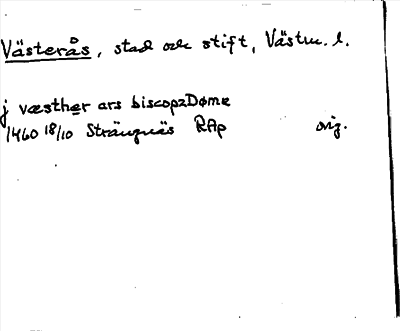 Västerås, stad och stift, Västm. l.
j væsther ars biscopzDøme
1460 18/10 Strängnäs RAp orig.